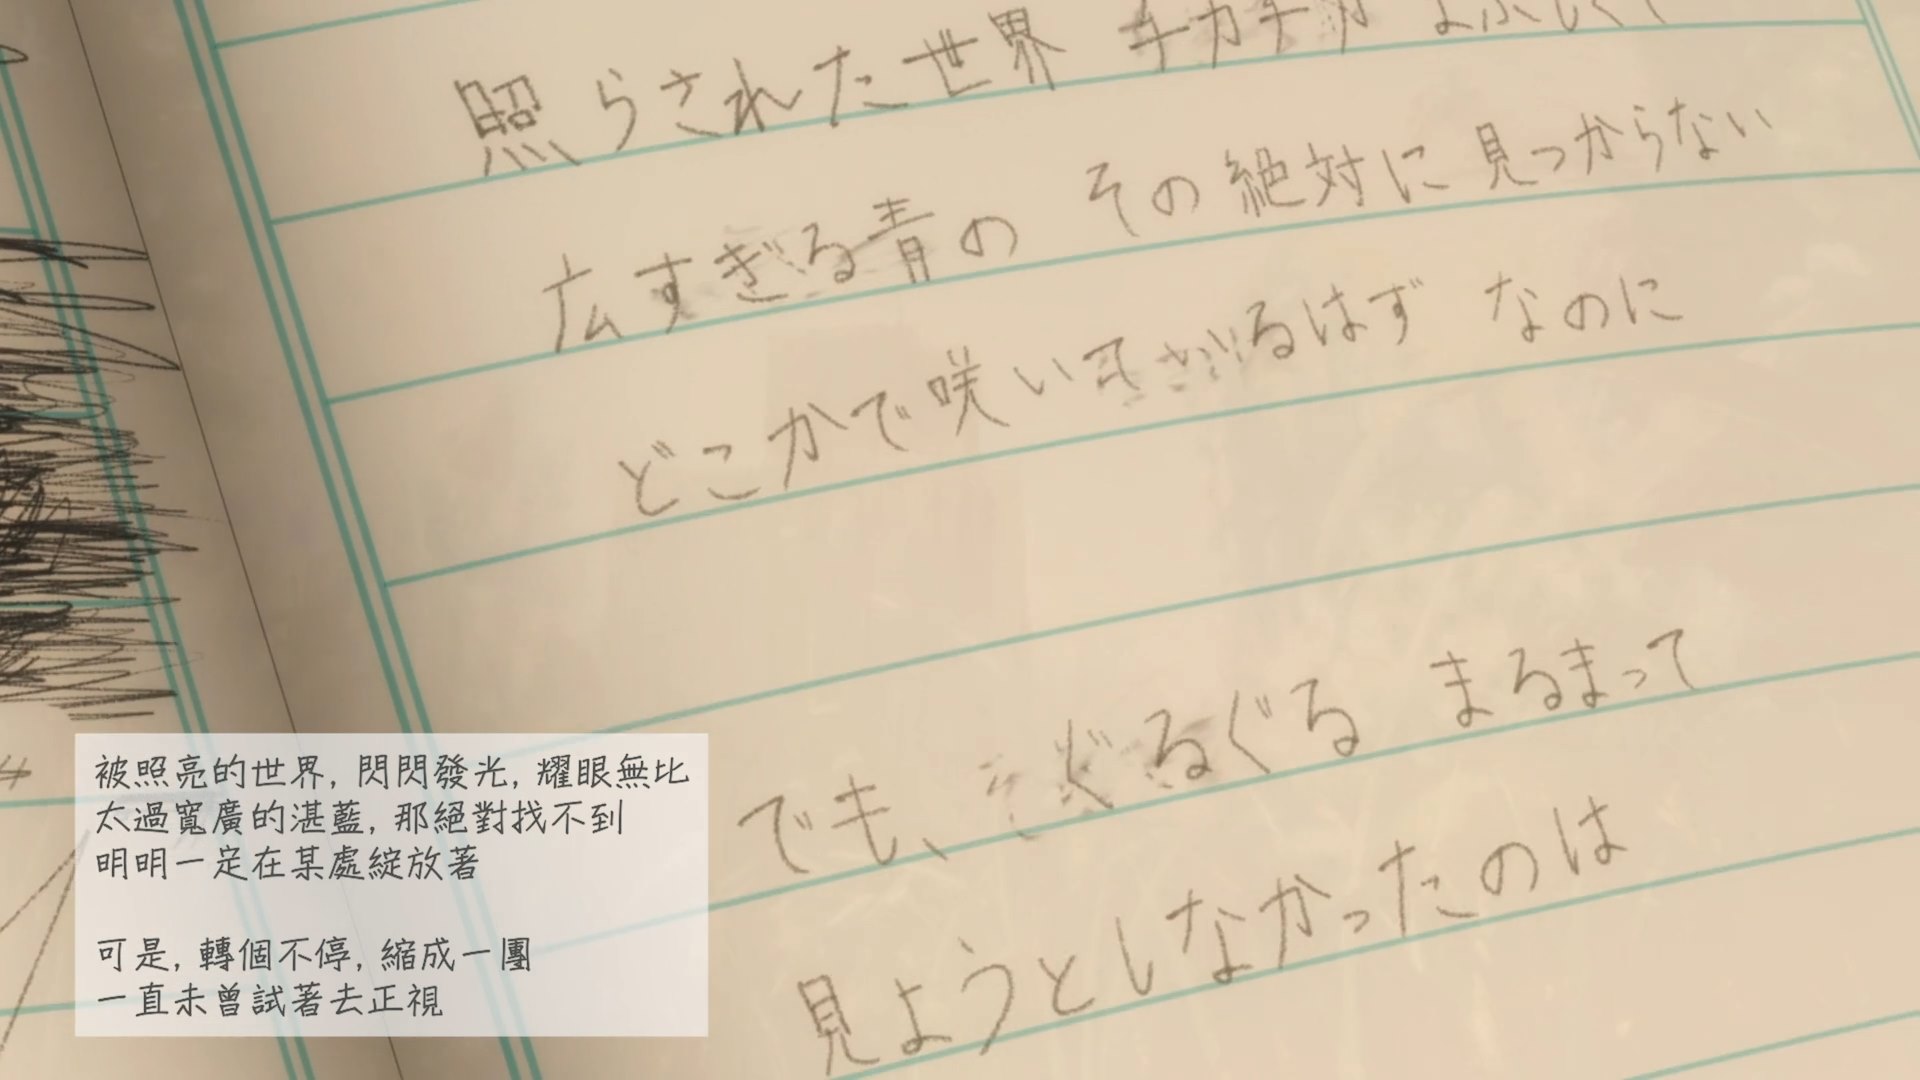 照らされた世界 チカチカ まぶしくて
広すぎる青の その絶対に見つからない
どこかで咲いてるはず なのに
でも、ぐるぐる まるまって
見ようとしなかったのは
被照亮的世界, 閃閃發光, 耀眼無比
太過寬廣的湛藍, 那絕對找不到
明明一定在某處綻放著
可是, 轉個不停, 縮成一團
一直未曾試著去正視